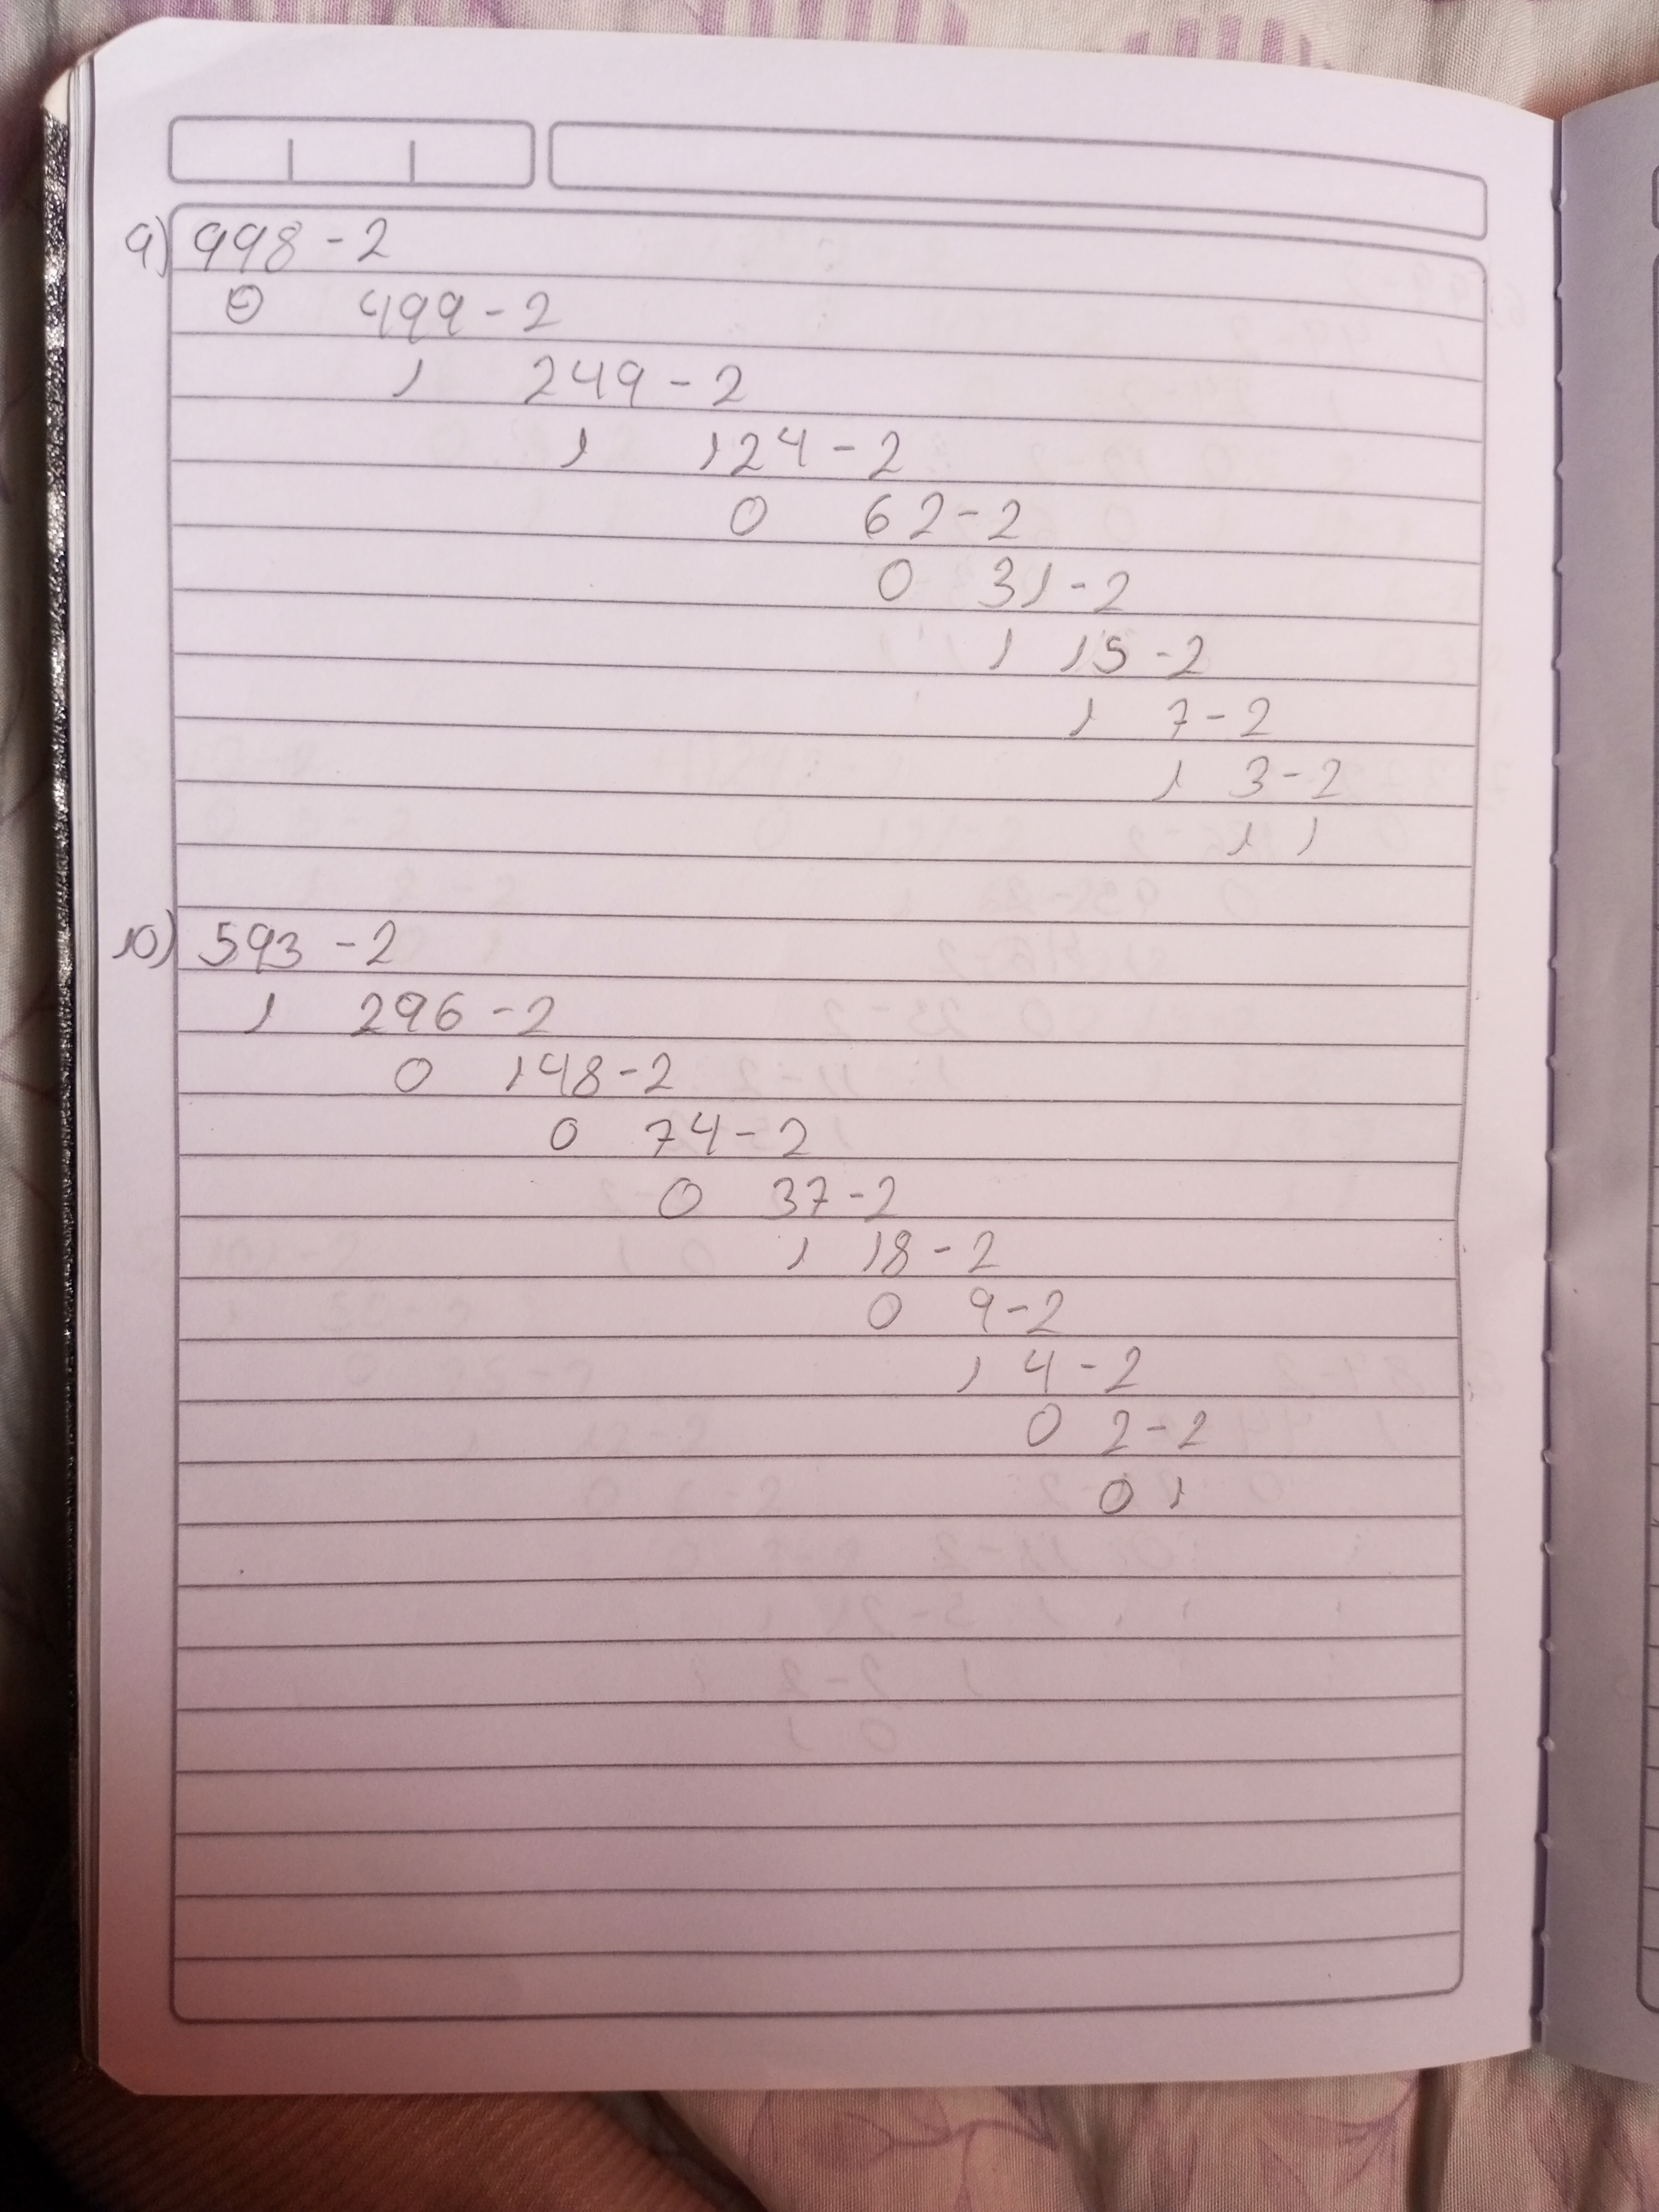 9) 998-2
0 499-2
1 249-2
1 124-2
0 62-2
0 31-2
1 15-2
1 7-2
1 3-2
1 1
10) 593-2
1 296-2
0 148-2
0 74-2
0 37-2
1 18-2
0 9-2
1 4-2
0 2-2
0 1